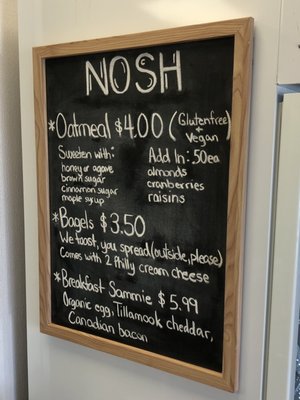 NOSH
*Oatmeal $4.00 (Gluten free + Vegan)
Sweeten with:
honey or agave
brown sugar
Cinnamon sugar
maple syrup
Add In: .50 ea
almonds
cranberries
raisins
*Bagels $3.50
We toast, you spread (outside, please)
Comes with 2 Philly cream cheese
*Breakfast Sammie $5.99
Organic egg, Tillamook cheddar,
Canadian bacon